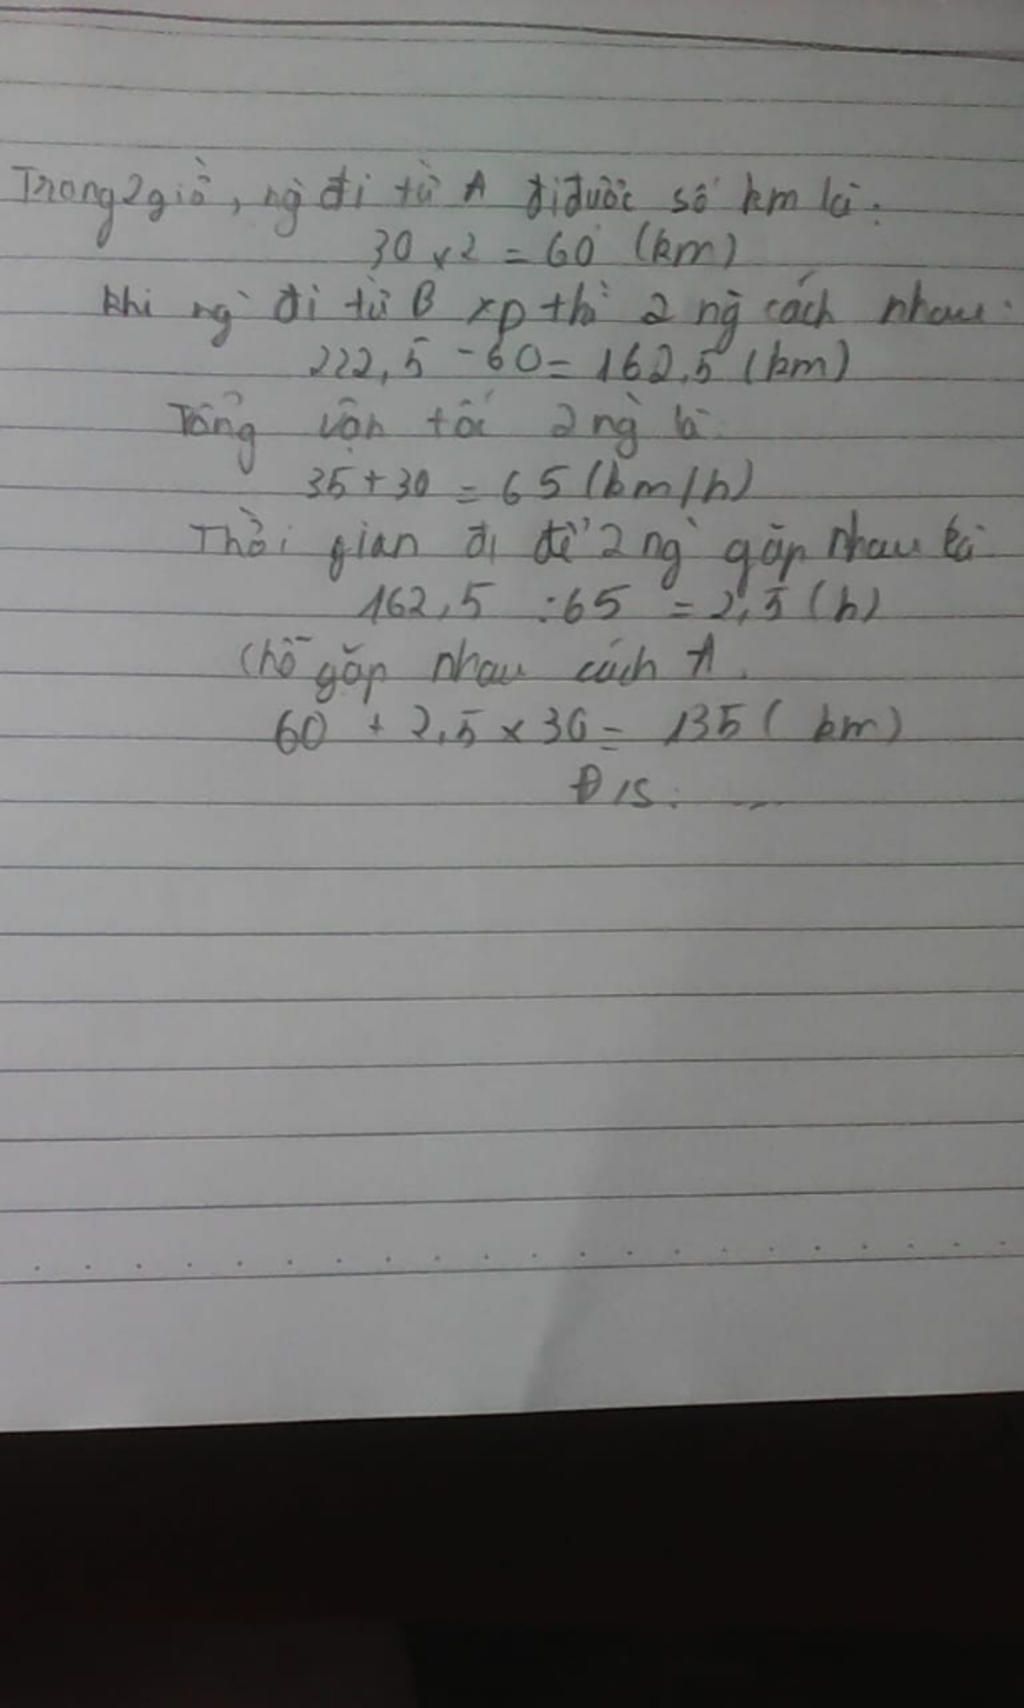 Trong 2 giờ, ng` đi từ A đi được số km là:
30 x 2 = 60 (km)
khi ng` đi từ B xp thì 2 ng` cách nhau:
222,5 - 60 = 162,5 (km)
Tổng vận tốc 2 ng` là
35 + 30 = 65 (km/h)
Thời gian đi để 2 ng` gặp nhau là
162,5 : 65 = 2,5 (h)
Chỗ gặp nhau cách A.
60 + 2,5 x 30 = 135 (km)
Đ/S: ....